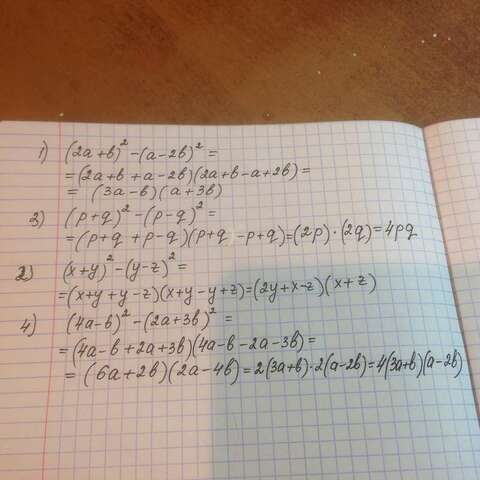 1) (2a+b)²-(a-2b)²=
=(2a+b+a-2b)(2a+b-a+2b)=
= (3a-b)(a+3b)
3) (p+q)²-(p-q)²=
=(p+q+p-q)(p+q-p+q)=(2p)·(2q)=4pq
2) (x+y)²-(y-z)²=
=(x+y+y-z)(x+y-y+z)=(2y+x-z)(x+z)
4) (4a-b)²-(2a+3b)²=
=(4a-b+2a+3b)(4a-b-2a-3b)=
= (6a+2b)(2a-4b)=2(3a+b)·2(a-2b)=4(3a+b)(a-2b)